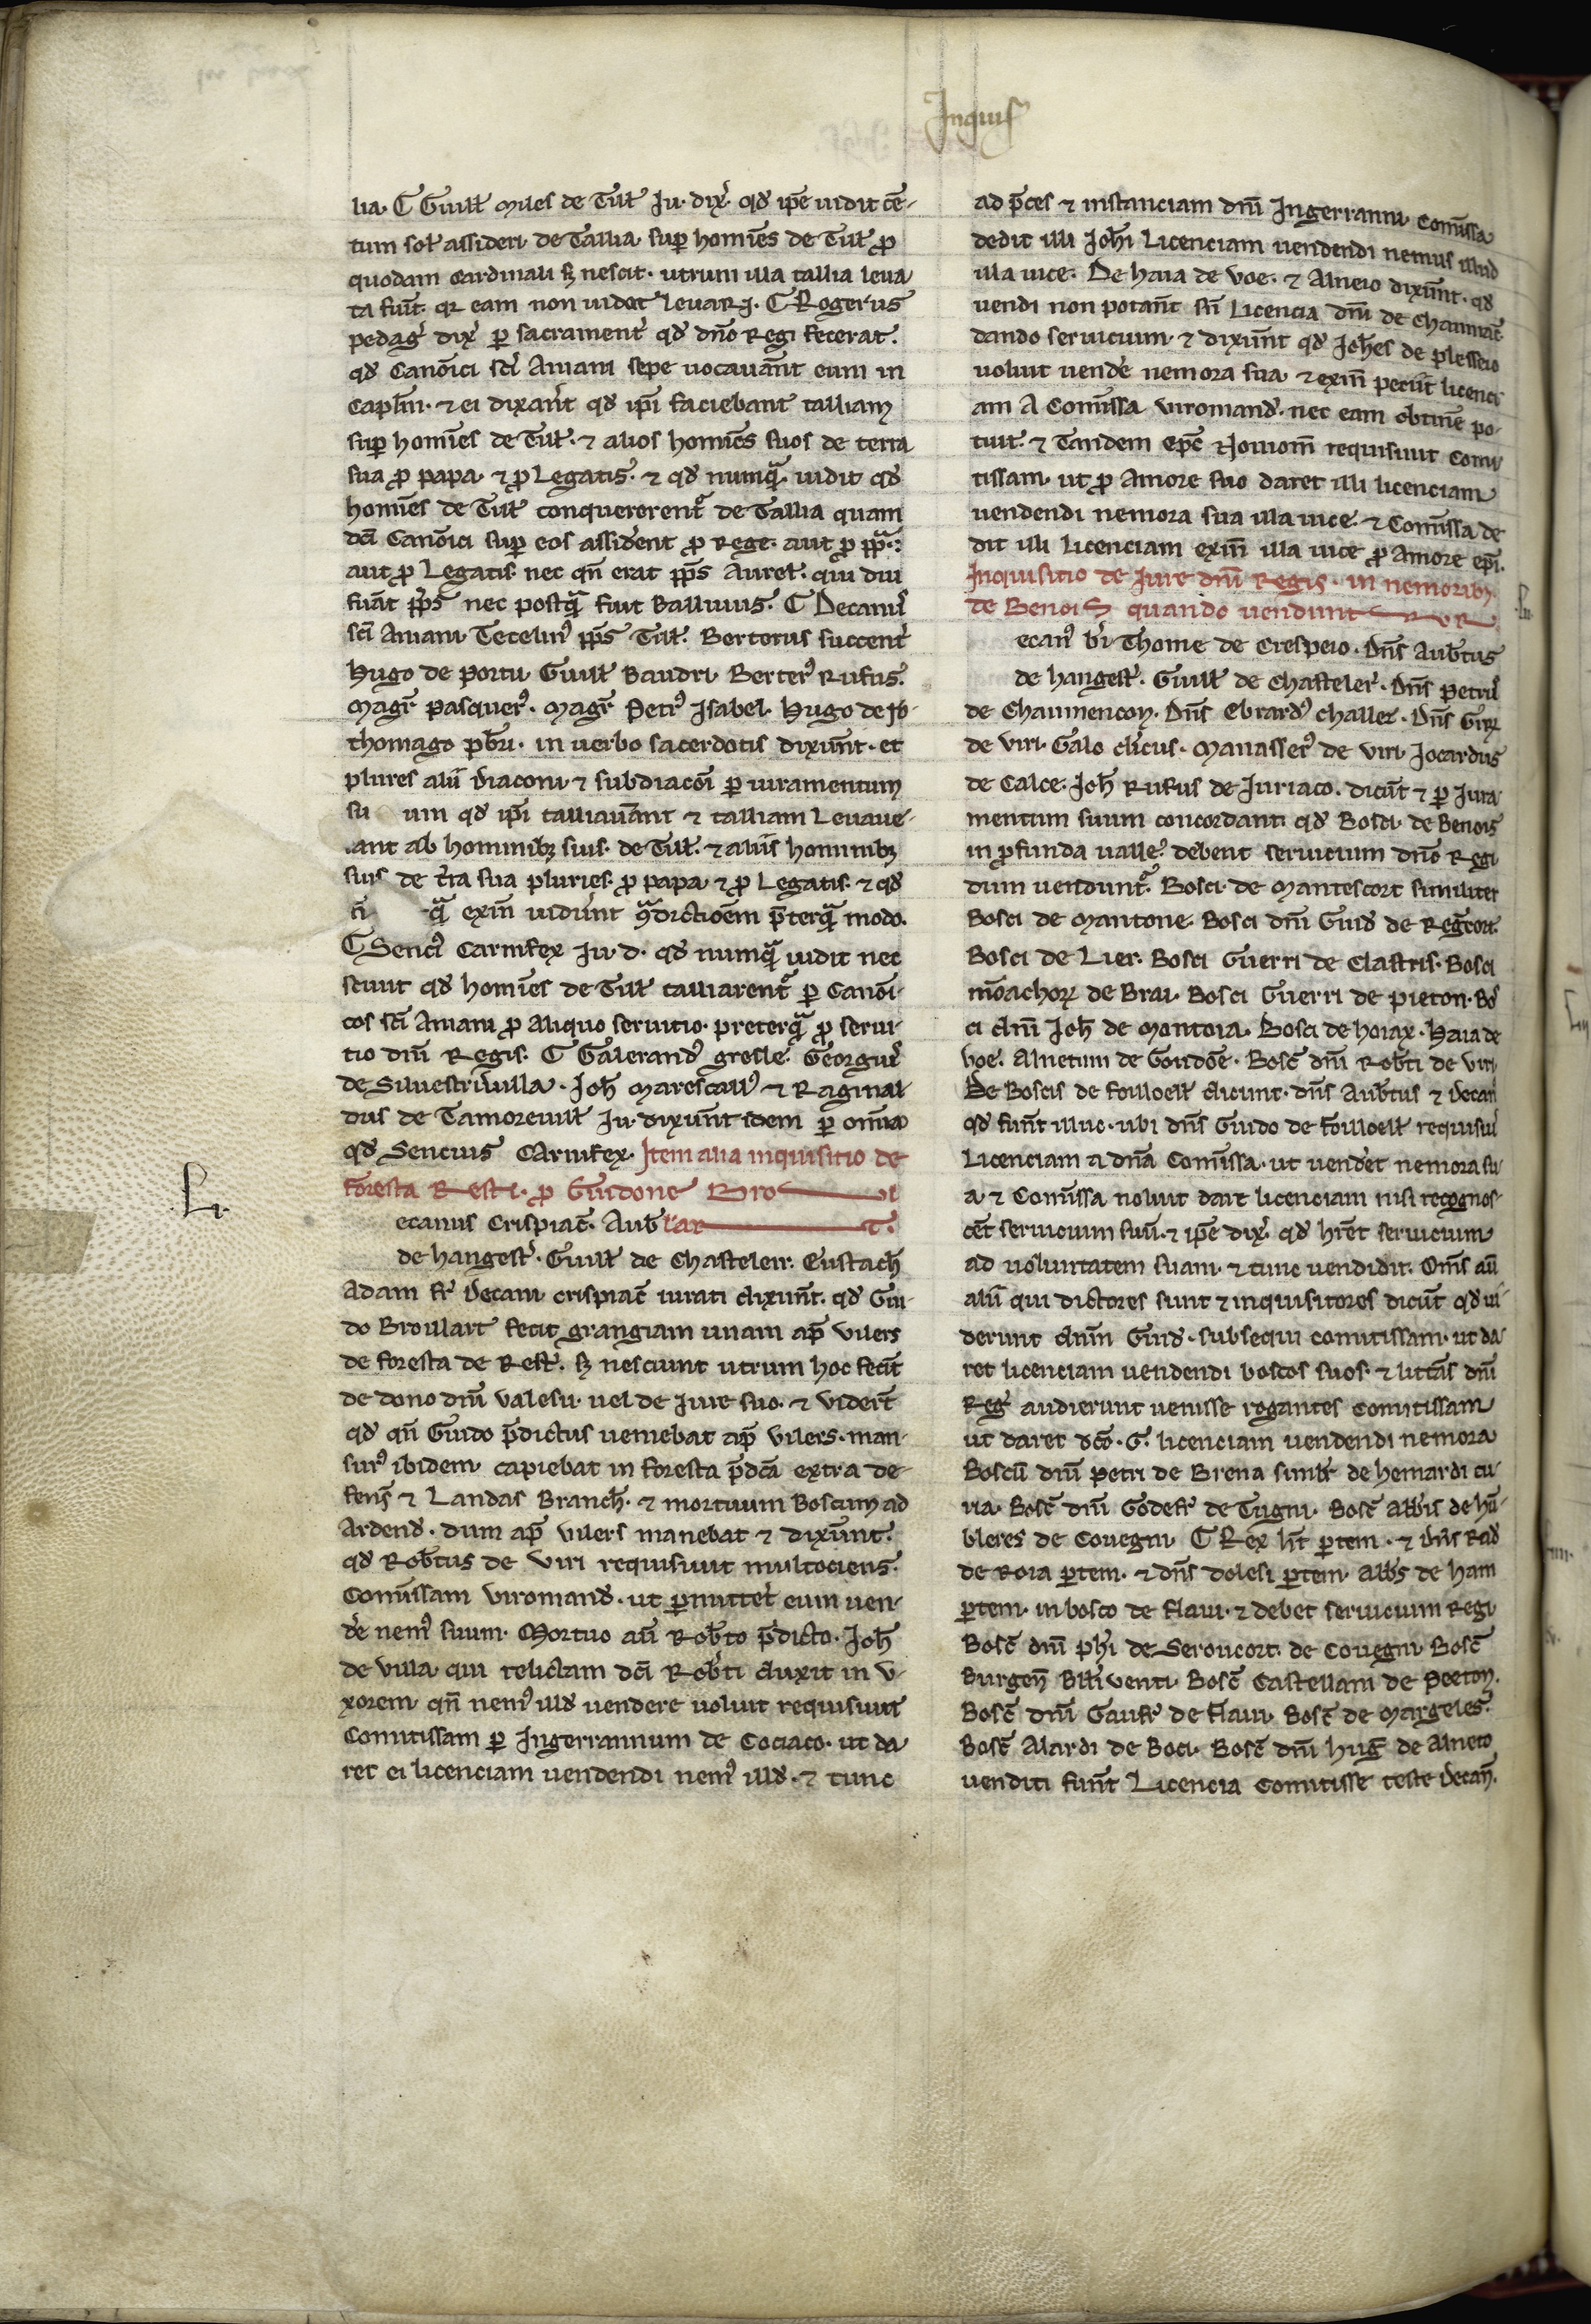 Inquiſ
lia. C Guill̃ miles de Till̃ Iu. dix̃. qd̾ ip̃e uidit cẽ-
tum sol̃ assideri de Tallia sup̲ homĩes de Till̃ p̲
quodam cardinali sꝫ nescit. utrum illa tallia leua
ta fu͛it. qꝛ eam non uidit leuari. C Rogerus
pedag͛ dix͛ p̲ sacrament͛ qd̾ dño Regi fecerat.
qd̾ Canõici sc̃i Aniani sepe uocauãnt eum in
Capl̃m. ⁊ ei dixer̃t qd̾ ip̃i faciebant talliam
sup̲ homĩes de Till̃. ⁊ alios homĩes suos de terra
sua p̲ papa. ⁊ p̲ Legatis. ⁊ qd̾ numq̃ uidit qd̾
homĩes de Till̃ conquererent᷑ de Tallia quam
dc̃i Canõici sup̲ eos assident p̲ Rege. aut p̲ pp̃a.
aut p̲ Legatis. nec qñ erat pp̃s Aurel̃. qui diu
fu͛at pp̃s nec postq̃ fuit Balliuus. C Decanꝰ
sc̃i Aniani. Tecelinꝰ pp̃s Till̃. Berterus succent͛
Hugo de portu. Guill̃ Baudri. Berterꝰ Rufus.
Magr̃ Pasquerꝰ. Magr̃ Petrꝰ Isabel. Hugo de Ro-
thomago pb̃ri. in uerbo sacerdotis dixũnt. et
plures alii diaconi ⁊ subdiacõi p̲ iuramentum
su um qd̾ ip̃i talliauãnt ⁊ talliam leuaue-
ant ab hominibꝫ suis. de Till̃. ⁊ aliis hominibꝫ
suis de t͛ra sua pluries. p̲ papa ⁊ p̲ Legatis. ⁊ qd̾
ñ q̃ exiñ uid͛unt ꝯ̃dictiõem p̃terq̃ modo.
C Sencꝰ Carnifex Iu. d. qd̾ numq̃ uidit nec
sciuit qd̾ homĩes de Till̃ talliarent᷑ p̲ Canõi-
cos sc̃i Aniani p̲ aliquo seruitio. preterq̃ p̲ serui-
tio dñi Regis. C Galerandꝰ grosse. Georguꝰ
de Siluestriuilla. Joh̃ Marescallꝰ ⁊ Raginal-
dus de Tamoreuill̃ Iu. dixũnt idem p̲ omnia
qd̾ Sencius Carnifex. Item alia inquisitio de
foresta Resti. p̲ Guidone Bro l
ecanus Crispiac̃. Aub̃ lar t.
de hangest͛. Guill̃ de Chasteleir. Eustach̃
Adam fr̃ Decani crispiac̃ iurati dixũnt. qd̾ Gui-
do Broulart fecit grangiam unam ap̃ vilers
de foresta de Rest͛. sꝫ nesciunt utrum hoc fecit̃
de dono dñi valesii. uel de iure suo. ⁊ vider̃t
qd̾ qñ Guido p̃dictus ueniebat ap̃ vilers. man-
surꝰ ibidem. capiebat in foresta p̃dc̃a extra de-
fens̃ ⁊ Landas Branch̃. ⁊ mortuum Boscum ad
Ardend̾. dum ap̃ vilers manebat ⁊ dixũnt.
qd̾ Rob̃tus de viri requisiuit multociens.
Comĩssam viromand̾. ut p̲mittet͛ eum uen-
d͛e nemꝰ suum. Mortuo aũ Rob̃to p̃dicto. Joh̃
de villa qui relictam dc̃i Rob̃ti duxit in v-
xorem. qñ nemꝰ illd̾ uendere uoluit requisiuit
Comitissam p̲ Ingerrannum de Cociaco. ut da
ret ei licenciam uendendi nemꝰ illd̾. ⁊ tunc
ad p̃ces ⁊ instanciam dñi Ingerranni. Comĩssa
dedit illi Joh̃i Licenciam uendendi nemus illud
illa uice. De haia de voe. ⁊ Alneio dixũnt. qd̾
uendi non potãnt sñ Licencia dñi de chauniac̃.
dando seruicium. ⁊ dixũnt qd̾ Joh̃es de plesseio
uoluit uend͛e nemora sua. ⁊ exiñ peciit licenci
am A Comĩssa viromand̾. nec eam obtinẽ po-
tuit. ⁊ Tandem ep̃c Nouioñ requisiuit Comi
tissam. ut p̲ Amore suo daret illi licenciam
uendendi nemora sua illa uice. ⁊ Comĩssa de
dit illi licenciam exiñ illa uice p̲ Amore ep̃i.
Inquisitio de iure dñi Regis. in nemoribꝫ
de Benois quando uendunt R v R
ecanꝰ b̃i Thome de Crespeio. Dñs Aub̃tus
de hangest͛. Guill̃ de Chasteler͛. Dñs petrus
de Chaumencon. Dñs Ebrardꝰ challer. Dñs Girꝝ
de viri. Galo cl͛icus. Manasserꝰ de viri. Jocardus
de Calce. Joh̃ Rufus de Iuriaco. dicũt ⁊ p̲ Iura
mentum suum concordant. qd̾ Bosci. de Benois
in p̲funda ualle. debent seruicium dño Regi
dum uendunt᷑. Bosci. de Mantescort similiter
Bosci de Mantone. Bosci dñi Guid̾ de Reg̃cort.
Bosci de Lier. Bosci Guerri de Clastris. Bosci
mõachoꝝ de Brai. Bosci Guerri de pieton. Bos
ci dñi Joh̃ de Montoia. Bosci de hoiax. Haia de
voe. Alnetum de Gondõe. Bosc̃ dñi Rob̃ti de viri.
De Boscis de foilloell̃ dicunt. dñs Aub̃tus ⁊ decan̾
qd̾ fu͛nt illuc. ubi dñs Guido de foilloell̃ requisiu͛
Licenciam a dñã Comĩssa. ut uend͛et nemora su-
a. ⁊ Comĩssa noluit dare licenciam nisi recognos-
cẽt seruicium suũ. ⁊ ip̃e dix͛. qd̾ hr̃et seruicium
ad uoluntatem suam. ⁊ tunc uendidit. Om̃s aũ
alii qui dictores sunt ⁊ inquisitores dicũt qd̾ ui-
derunt dñm Guid̾. subsequi comitissam. ut da-
ret licenciam uendendi boscos suos. ⁊ litt͛as dñi
Reg̾ audierunt uenisse rogantes comitissam
ut daret dc̃o. G. licenciam uendendi nemora
Boscũ dñi petri de Brena simil̃r de hemardi cu-
ria. Bosc̃ dñi Godefr̃ de Tugni. Bosc̃ Abb̃is de hũ-
bleres de Couegni. C Rex h̃t p̲tem. ⁊ dñs Rad̾
de Roia p̲tem. ⁊ dñs dolesi p̲tem. Abb̃s de ham
p̲tem. in bosco de flaui. ⁊ debet seruicium Regi.
Bosc̃ dñi ph̃i de Seroucort. de Couegni. Bosc̃
Burgeñ Bl̃liuenti. Bosc̃ Castellani de Peeton.
Bosc̃ dñi Gaufr̃ de flaui. Bosc̃ de Margeles.
Bosc̃ Alardi de Boci. Bosc̃ dñi hug̃ de Alneto
uenditi fu͛nt Licencia Comitisse teste decañ.